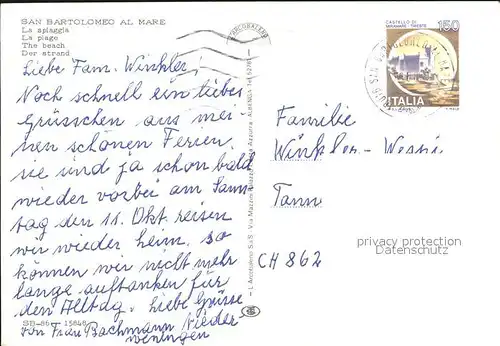 SAN BARTOLOMEO AL MARE
La spiaggia
La plage
The beach
Der strand
Liebe Fam. Winkler!
Noch schnell ein liebes
Grüsschen aus mei-
nen schönen Ferien,
sie sind ja schon bald
wieder vorbei am Sams
tag den 11. Okt. reisen
wir wieder heim. So
können wir nicht mehr
lange auftanken für
den Alltag. Liebe Grüsse
von Frau Bachmann Nieder
weningen
SB-86 15848
CASTELLO DI
MIRAMARE - TRIESTE
150
ITALIA
Familie
Winkler-
Tann
CH 862
privacy protection
watermark